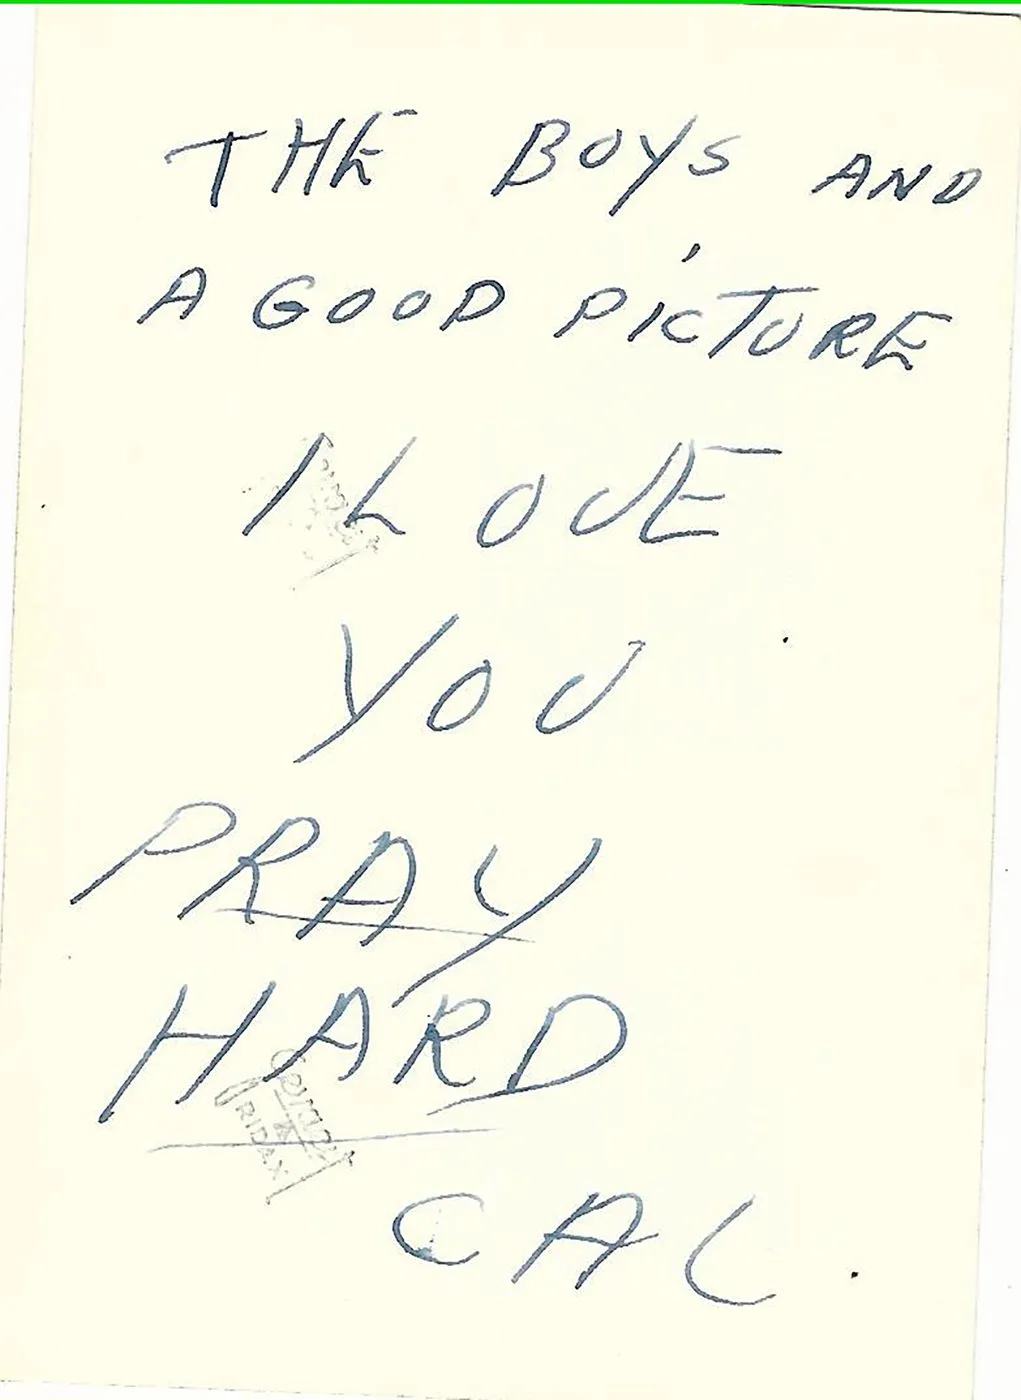 THE BOYS AND
A GOOD PICTURE
I LOVE
YOU
PRAY
HARD
CAL